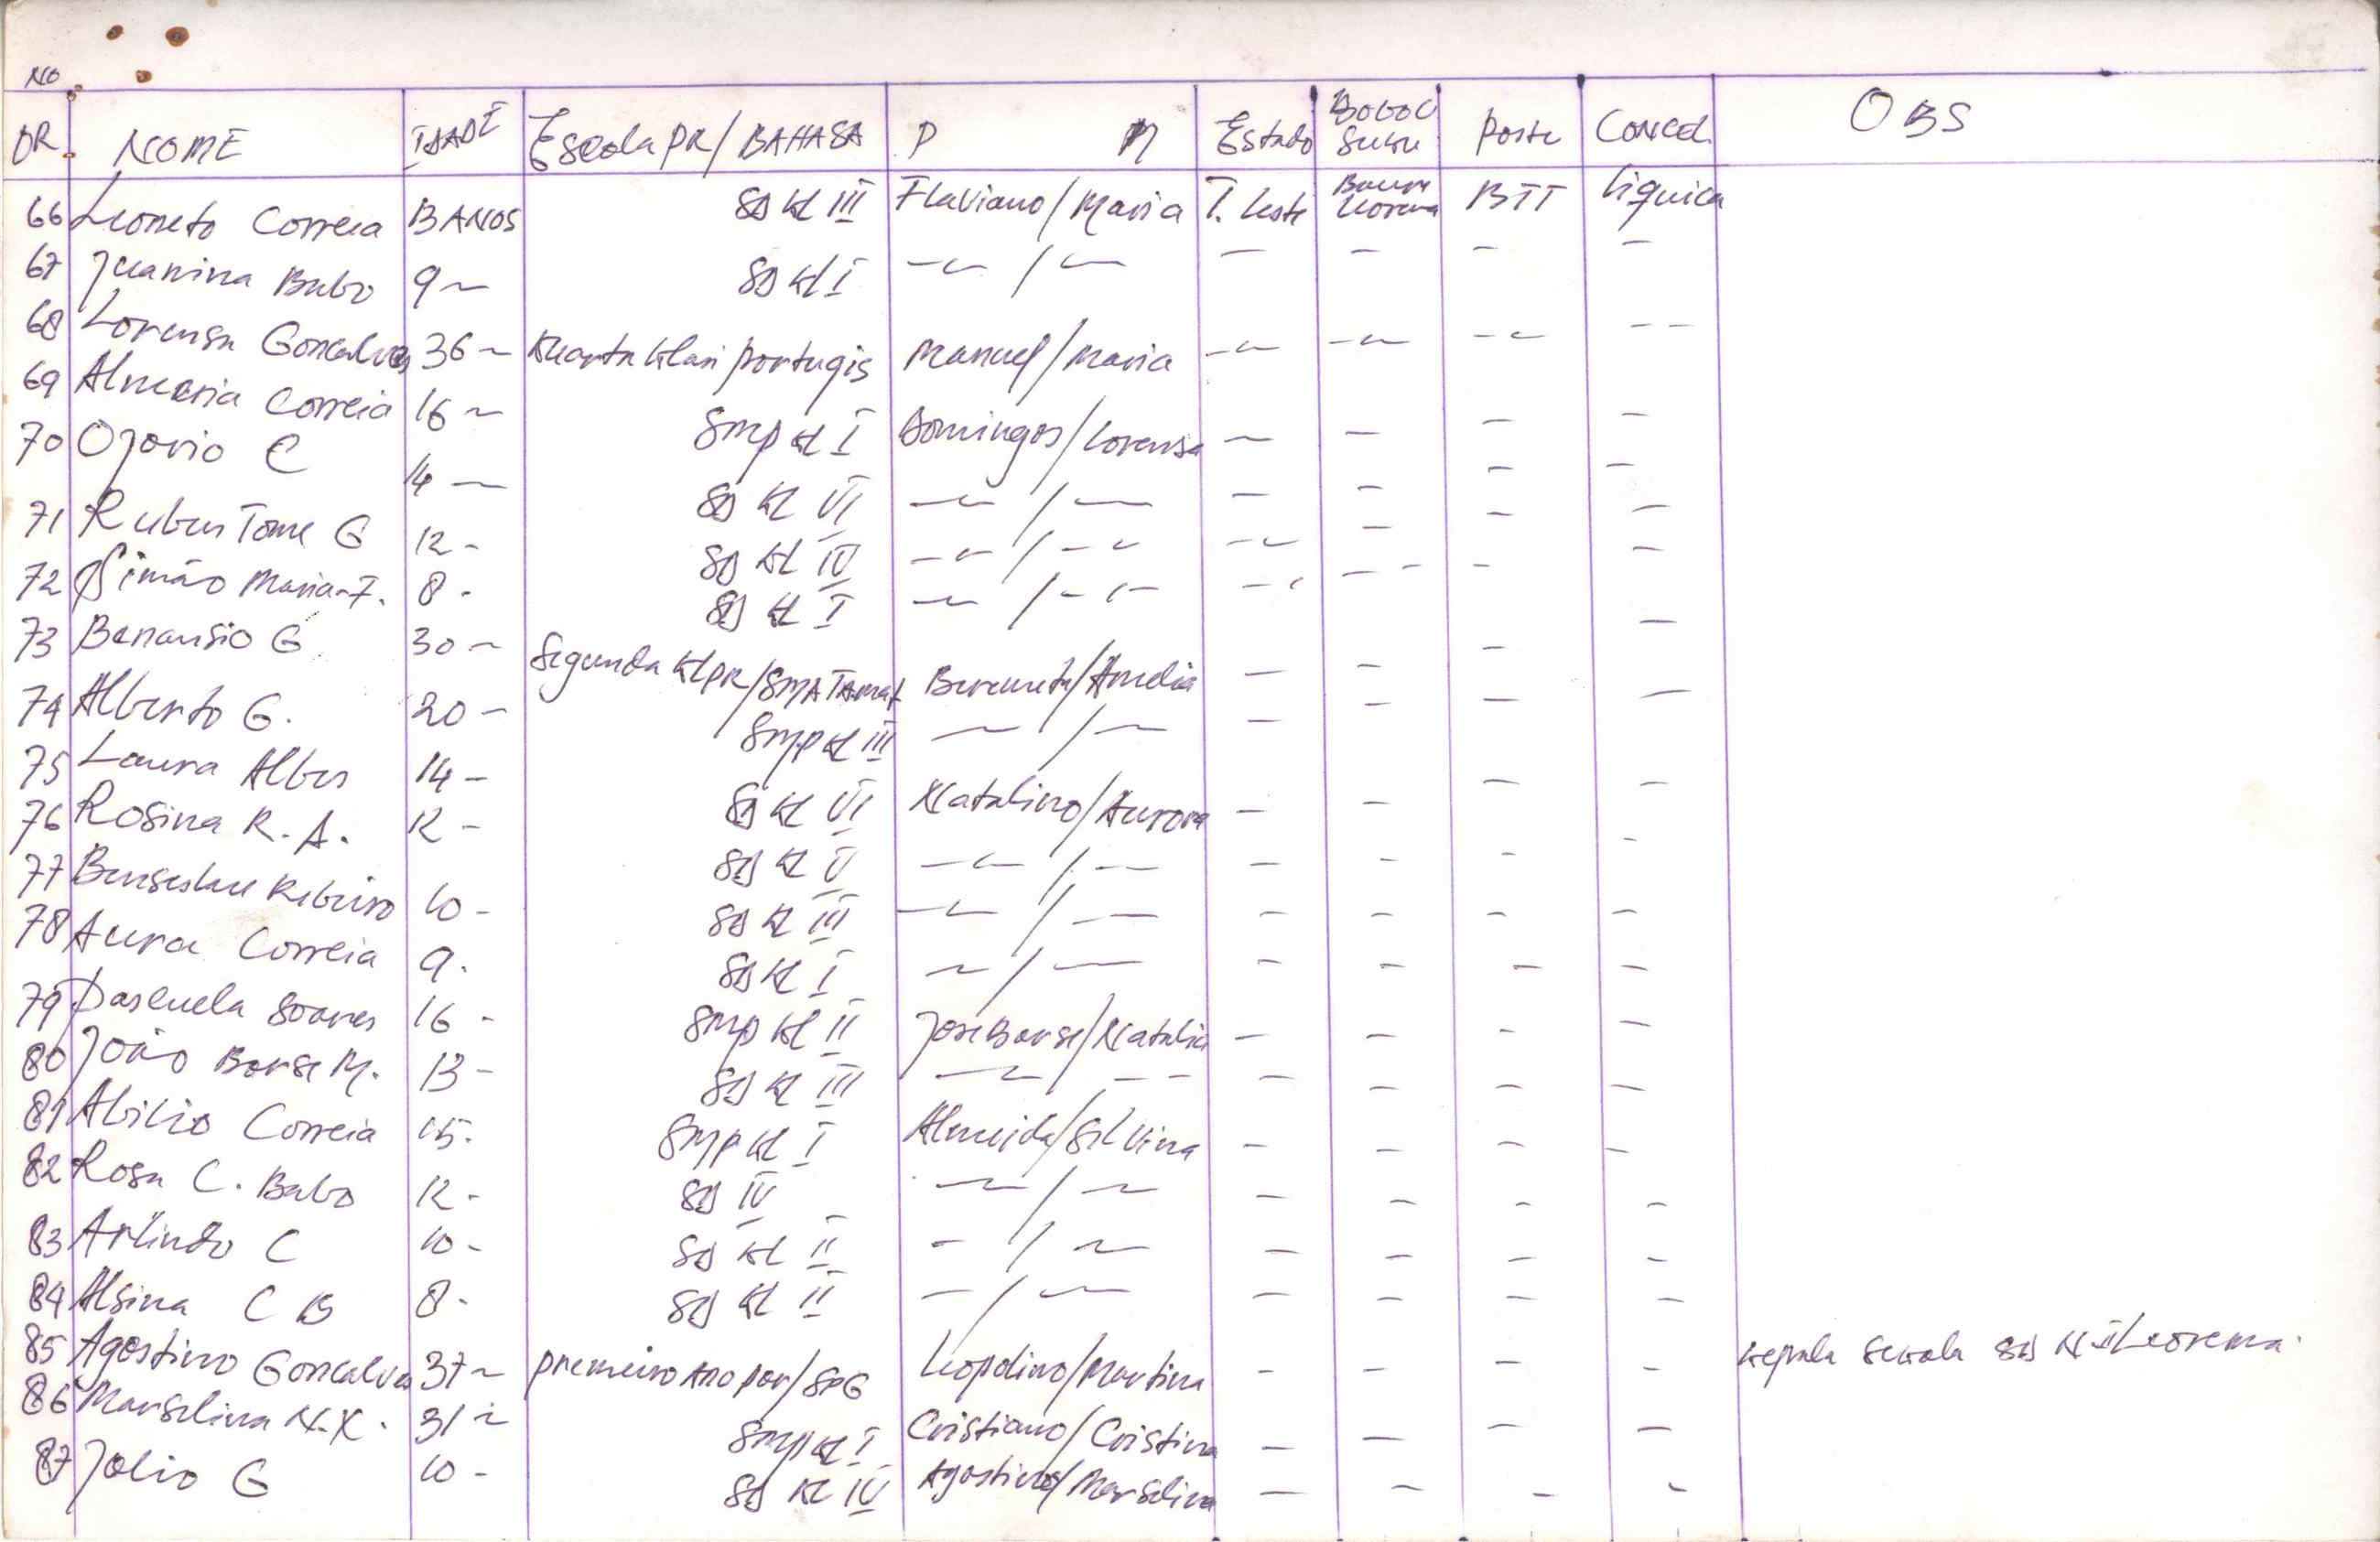 NO
OR NOME IDADE Escola PR/ BAHASA P M Estado Suku Poste Concel OBS
66 Leoneto Correia 13 ANOS SD Kl III Flaviano/Maria T. Leste Leorema BTT Liquica
67 Juanina Babo 9 ~ SD Kl I -~ / ~ - - - -
68 Lorensa Goncalves 36 ~ Kuarta Klasi portugis Manuel/Maria -~ -~ -~ --
69 Correia 16 ~ SMP Kl I Domingos/Lorensa ~ - - -
70 Ojorio C 14 - SD Kl VI -~ / ~ - - - -
71 Ruben Tome G 12 - SD Kl IV -~ / -~ -~ - - -
72 Simão Maria F. 8 - SD Kl I -~ / -~ - -- - -
73 Benansio G 30 ~ Segunda Kl PR/SMA Tamat /Amelia - - - -
74 Alberto G. 20 - SMP Kl III ~ / ~ - - - -
75 Laura Alves 14 - SD Kl VI Natalino/Aurora - - - -
76 Rosina R. A. 12 - SD Kl V -~ / -- - - - -
77 Ribeiro 10 - SD Kl III -~ / -- - - - -
78 Aurea Correia 9 - SD Kl I ~ / ~ - - - -
79 Pascuela Soares 16 - SMP Kl II Jose Borse/Natalia - - - -
80 João Borse M. 13 - SD Kl III -~ / -- - - - -
81 Abilio Correia 15 - SMP Kl I Almeida/Silvina - - - -
82 Rosa C. Babo 12 - SD IV -~ / ~ - - - -
83 Arlindo C 10 - SD Kl II - / ~ - - - -
84 Alsina C B 8 - SD Kl II - / ~ - - - -
85 Agostino Goncalves 37 ~ premeiro Ano por/SPG Leopolino/Martina - - - - kepala sekola SD N I Leorema
86 Marselina N.X. 31 ~ SMP Kl I Cristiano/Cristina - - - -
87 Jolio G 10 - SD Kl IV Agostino/Marselina - - - -